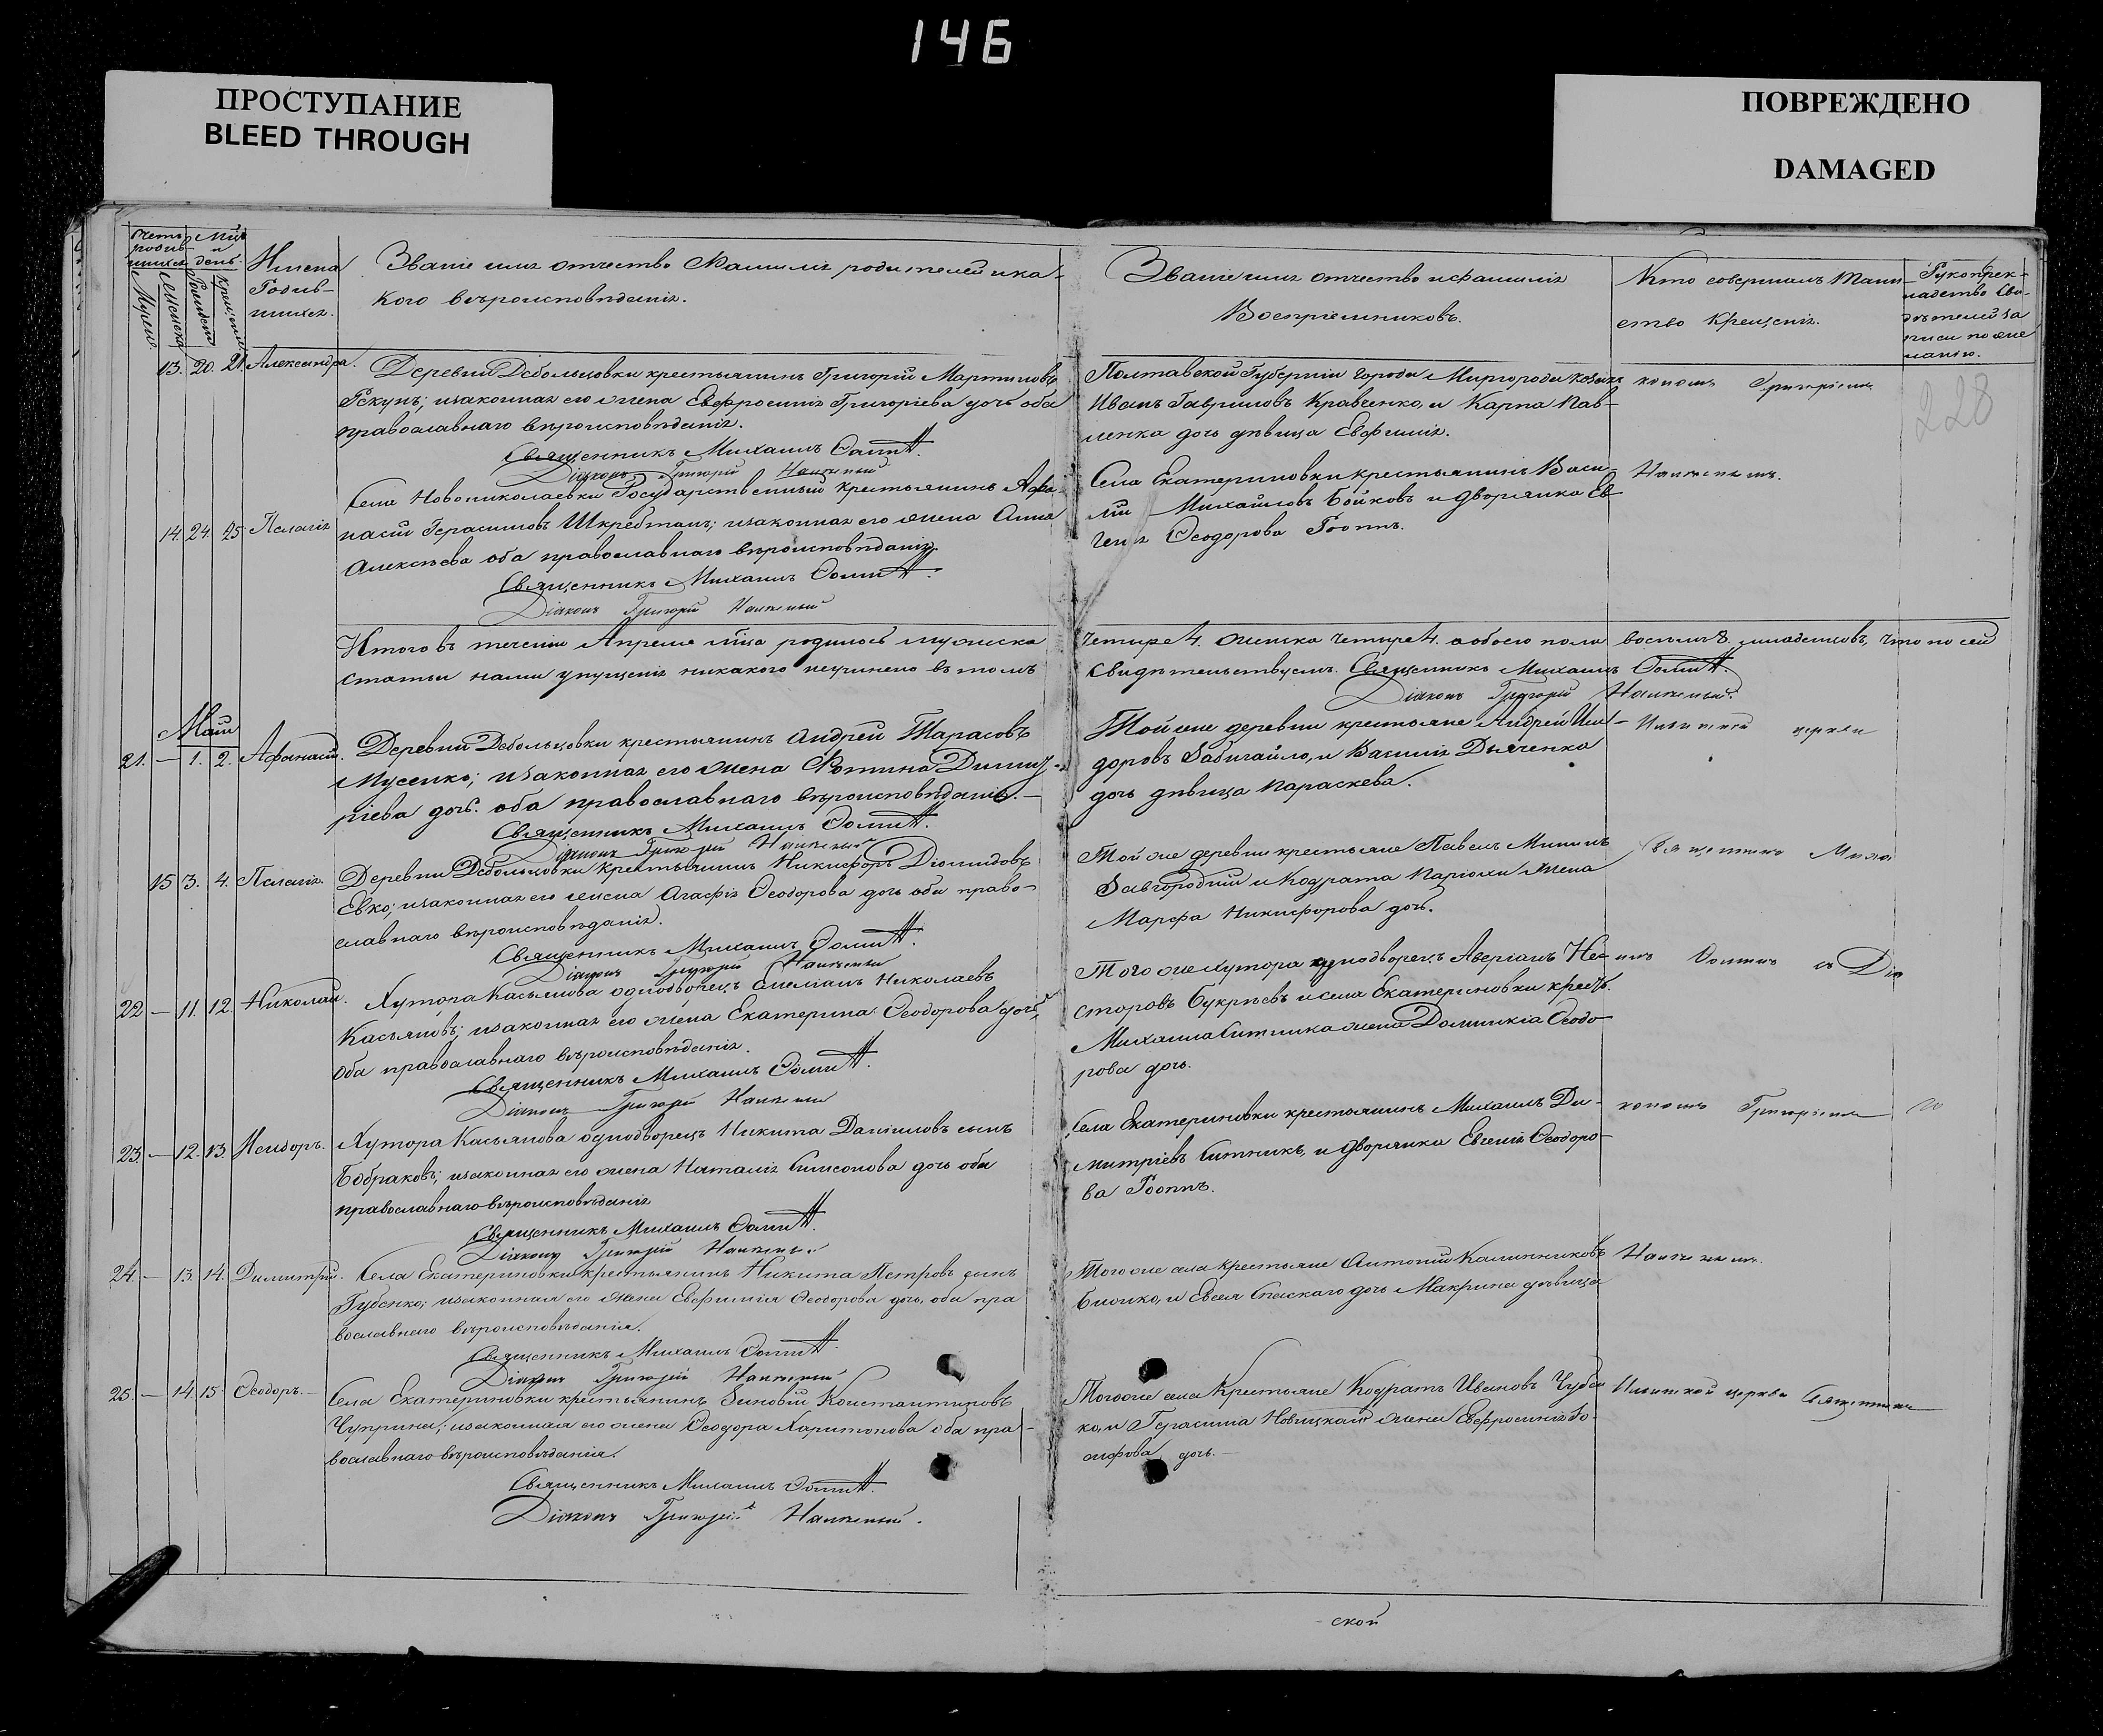 146
ПРОСТУПАНИЕ
BLEED THROUGH
ПОВРЕЖДЕНО
DAMAGED
Счетъ родив-шихся
Муж.
Женска
Мц̃ъ и день
Рожденія
Крещенія
Имена Родив-шихся.
Званіе имя отчество Фамилія родителей и ка-
кого вѣроисповѣданія.
Званіе имя отчество и фамилія
Воспріемниковъ.
Кто совершалъ Таин-
ство Крещенія.
Рукоприк-
ладство Сви-
дѣтелей за
писи по же
ланію.
228
13. 20. 21. Александра.
Деревни Дебольцовки крестьянинъ Григорій Мартиновъ
законная его жена Евфросинія Григоріева дочь оба
православнаго вѣроисповѣданія.
Священникъ Михаилъ
Діаконъ Григорій
Полтавской Губерніи города Миргорода козакъ
Иванъ Гавриловъ Кравченко, и Карпа Пав-
ленка дочь дѣвица Евфимія.
кономъ Григоріемъ
14. 24. 25 Пелагія
Села Новониколаевки Государственный крестьянинъ Афа-
насій Герасимовъ Шкребтанъ; законная его жена Анна
Алексѣева оба православнаго вѣроисповѣданія.
Священникъ Михаилъ
Діаконъ Григорій
Села Екатериновки крестьянинъ Васи-
лій Михайловъ Бойковъ и дворянка Ев
генія Ѳеодорова Роопъ.
Итого въ теченіи Апреля мц̃а родилось мужеска
четыре 4. женска четыре 4. а обоего пола восемь 8 младенцовъ, что по сей
статьи нами упущенія никакого неучинено въ томъ
свидѣтельствуемъ. Священникъ Михаилъ
Діаконъ Григорій
Май
21. — 1. 2. Афанасій.
Деревни Дебольцовки крестьянинъ Андрей Тарасовъ
Мусенко; и законная его жена Фотина Димит-
ріева дочь. оба православнаго вѣроисповѣданія. —
Священникъ Михаилъ
Діаконъ Григорій
Той же деревни крестьяне Андрей Иси-
доровъ Забигайло, и Василія Дьяченка
дочь дѣвица Параскева.
церкви
15 3. 4. Пелагія.
Деревни Дебольцовки крестьянинъ Никифоръ Діомидовъ
Евко; законная его жена Агафія Ѳеодорова дочь оба право-
славнаго вѣроисповѣданія.
Священникъ Михаилъ
Діаконъ Григорій
Той же деревни крестьяне Павелъ Мининъ
Завгородній и Кодрата жена
Марфа Никифорова дочь.
Священникъ Миха
22 — 11. 12. Николай.
Хутора Касьянова однодворецъ Емеліанъ Николаевъ
Касьяновъ; и законная его жена Екатерина Ѳеодорова дочь
оба православнаго вѣроисповѣданія.
Священникъ Михаилъ
Діаконъ Григорій
Того же хутора однодворецъ Аверіанъ Не-
сторовъ Букрѣевъ и села Екатериновки крест.
Михаила Ситника жена Домникіа Ѳеодо-
рова дочь.
съ Діа
23. — 12. 13. Исидоръ.
Хутора Касьянова однодворецъ Никита Даніиловъ сынъ
Бобраковъ; и законная его жена Наталія Симеонова дочь оба
православнаго вѣроисповѣданія
Священникъ Михаилъ
Діаконъ Григорій
Села Екатериновки крестьянинъ Михаилъ Ди-
митріевъ Ситникъ, и дворянка Евгенія Ѳеодоро-
ва Роопъ.
кономъ Григоріемъ
24. — 13. 14. Димитрій.
Села Екатериновки крестьянинъ Никита Петровъ сынъ
Губенко; и законная его жена Евфимія Ѳеодорова дочь, оба пра
вославнаго вѣроисповѣданія.
Священникъ Михаилъ
Діаконъ Григорій
Того же села крестьяне Антоній Калинниковъ
и Евсея Спаскаго дочь Макрина дѣвица
25. — 14. 15. Ѳеодоръ. —
Села Екатериновки крестьянинъ Зиновій Константиновъ
Чуприна; и законная его жена Ѳеодора Харитонова оба пра-
вославнаго вѣроисповѣданія.
Священникъ Михаилъ
Діаконъ Григорій
Того же села Крестьяне Кодратъ Ивановъ Чубен
ко, и Герасима Новицкаго жена Евфросинія Іо-
сифова дочь. —
церкви Священник
ской